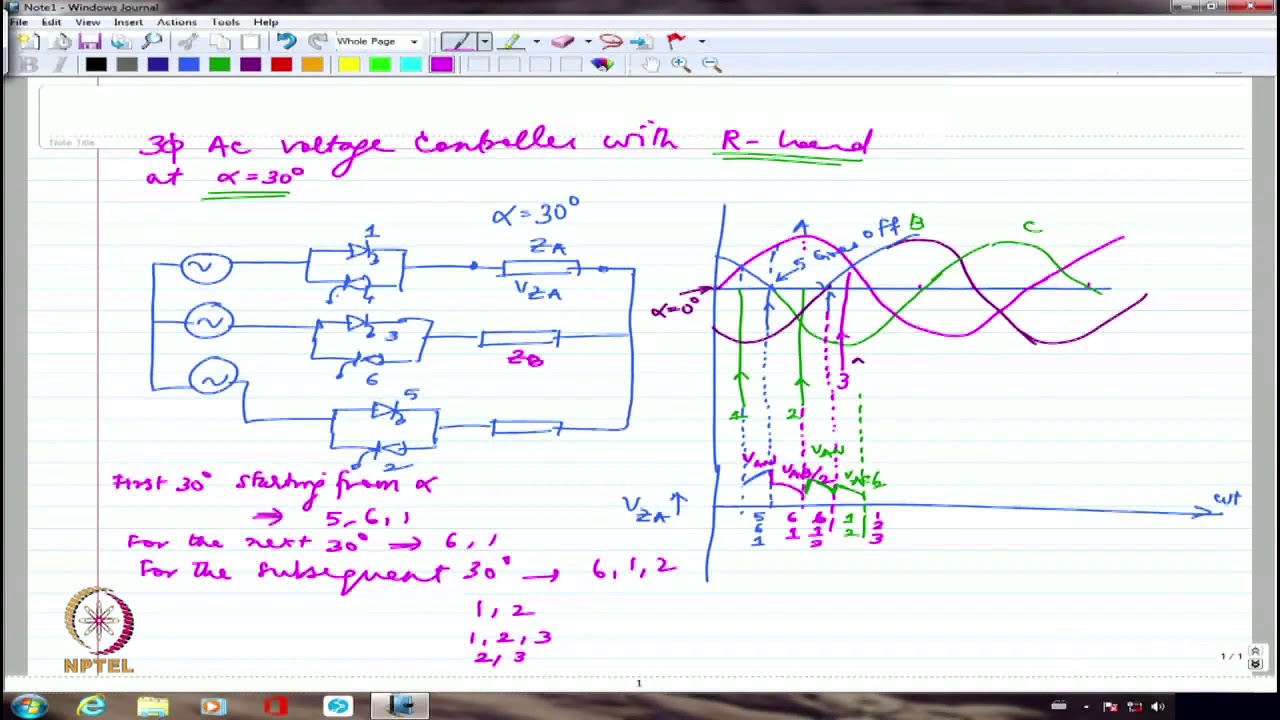 Note1 - Windows Journal
File Edit View Insert Actions Tools Help
Whole Page
B I
Note Title
3φ Ac voltage controller with R-load
at α=30°
α=30°
1
4
Z_A
V_ZA
3
6
Z_B
5
2
A
off
B
C
5
α=0°
1
2
3
V_AN
V_AB/2
V_AN
V_AC/2
V_ZA ↑
ωt
5 6 6 1 1
6 1 1 2 2
1 2 3
First 30° starting from α
⇒ 5, 6, 1
For the next 30° ⇒ 6, 1
For the subsequent 30° → 6, 1, 2
1, 2
1, 2, 3
2, 3
NPTEL
1 / 1
1